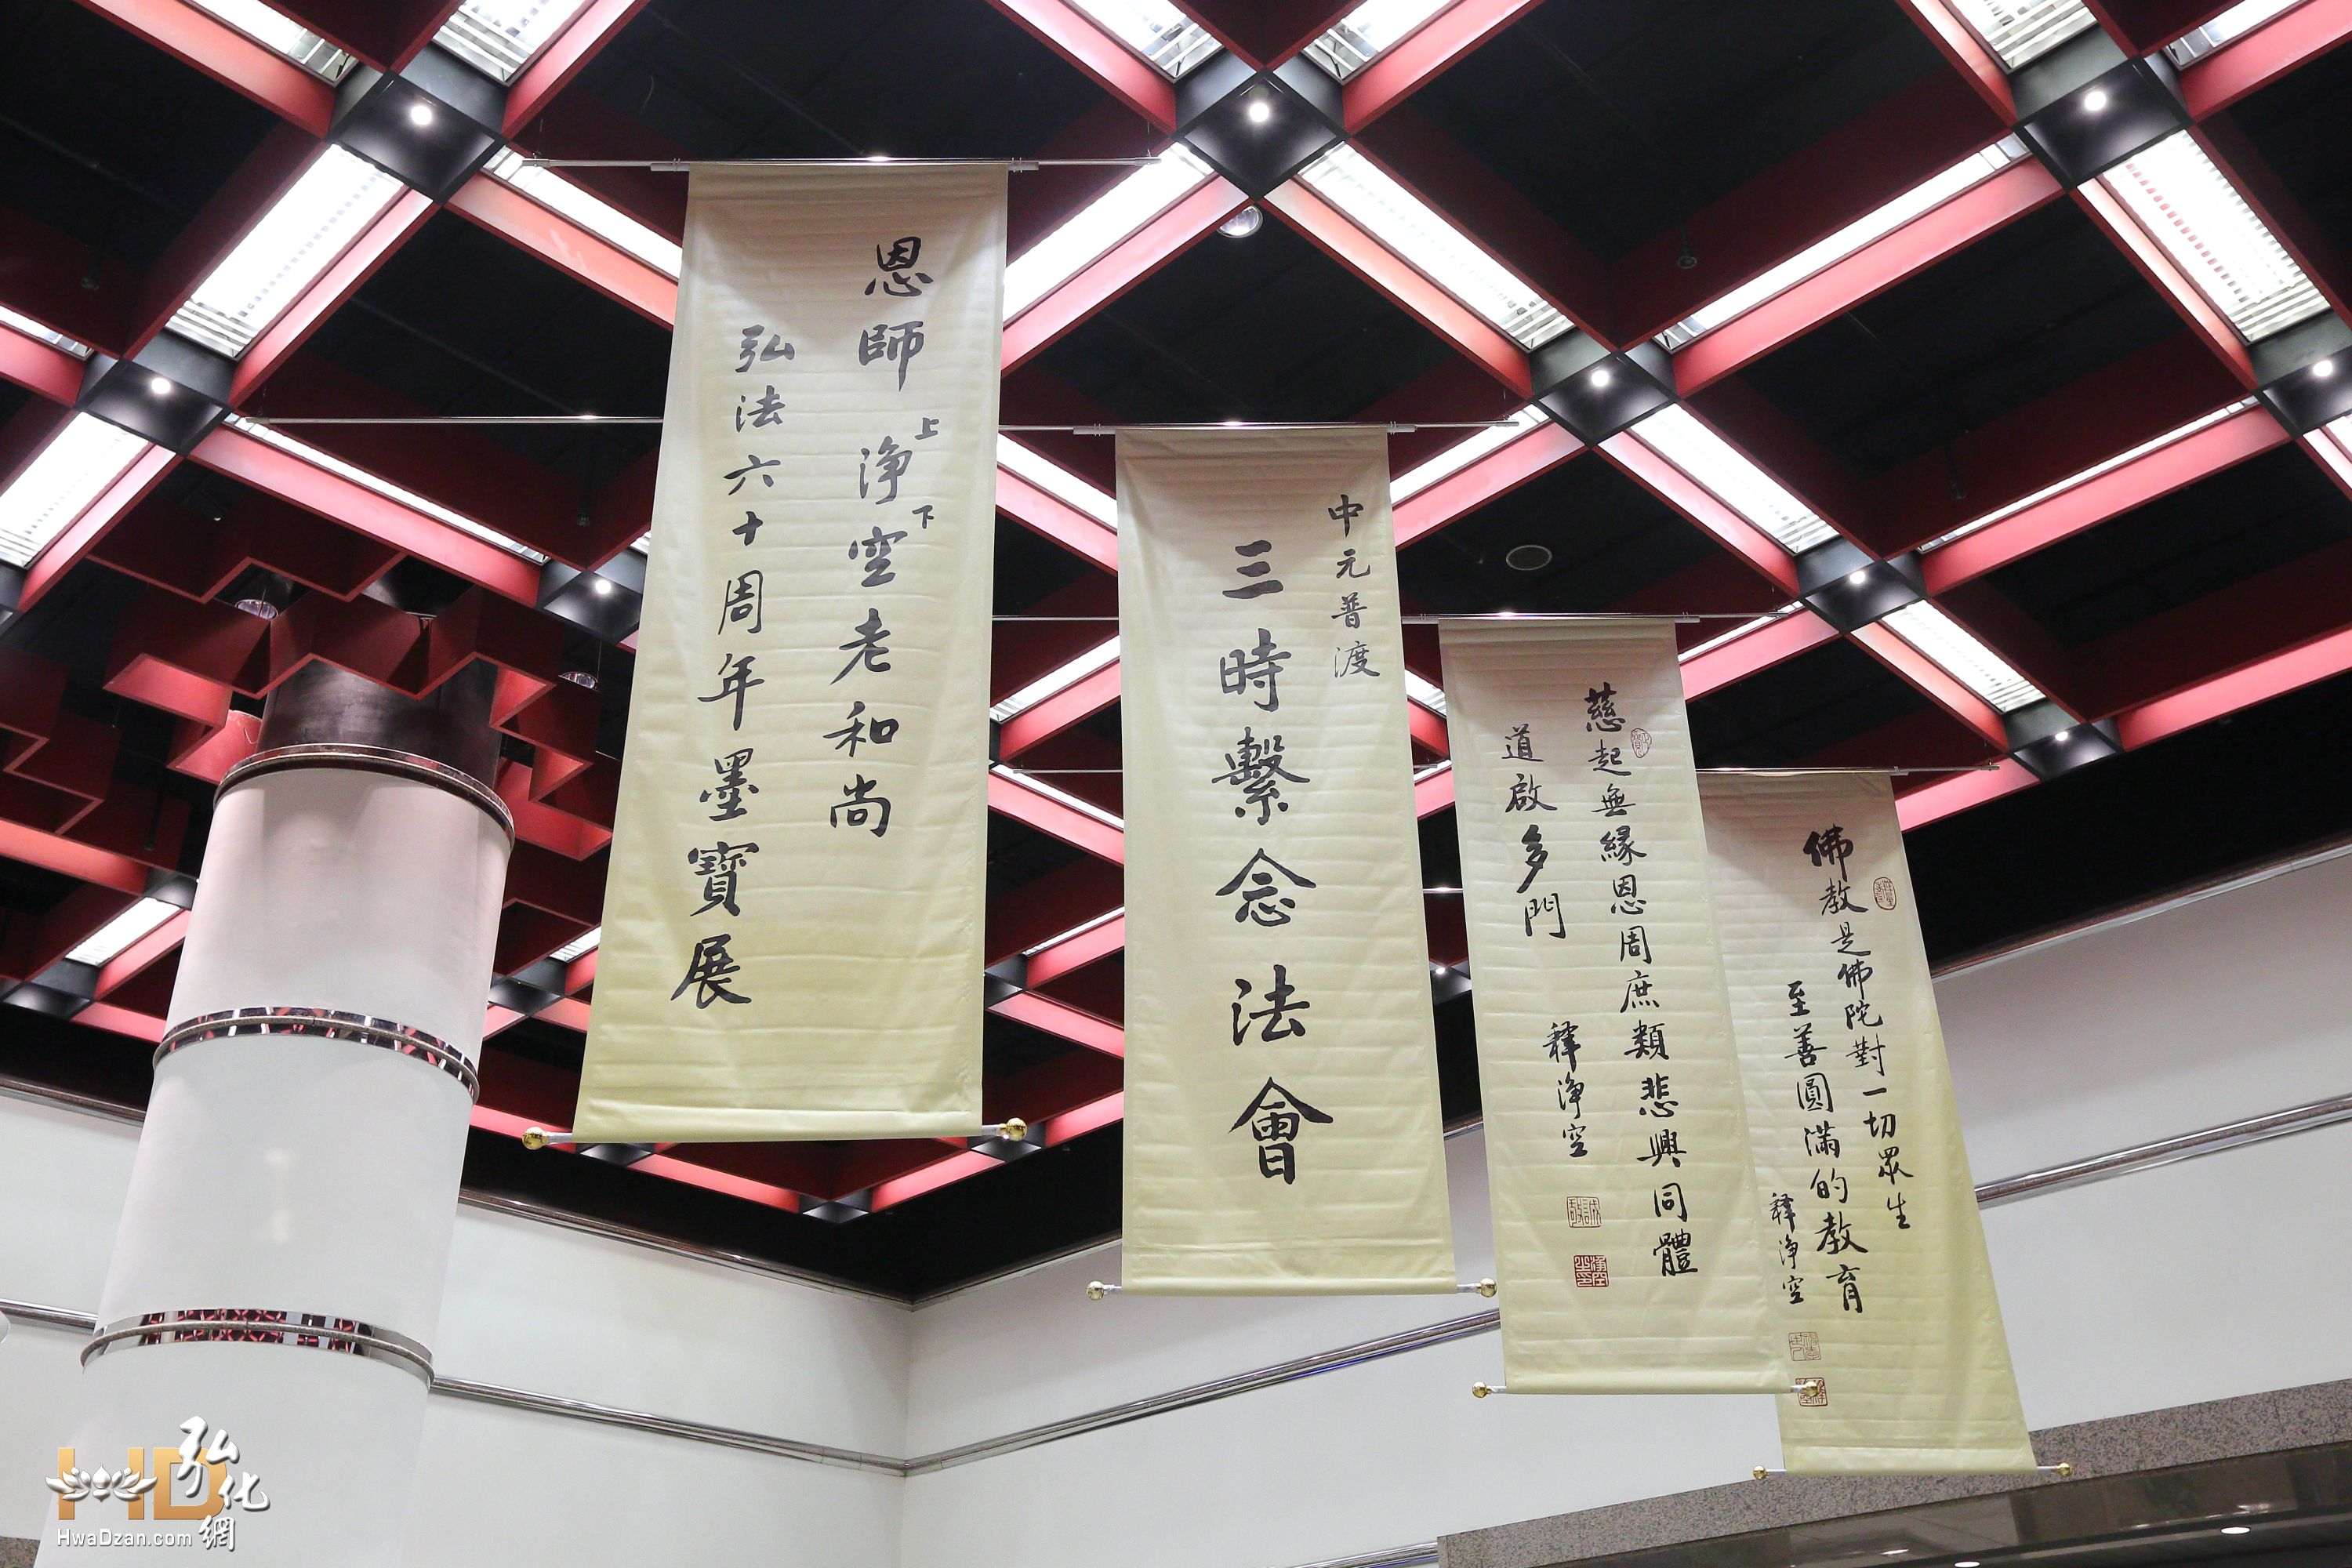 恩師上淨下空老和尚
弘法六十周年墨寶展
中元普渡
三時繫念法會
慈起無緣恩周庶類悲興同體
道啟多門
釋淨空
佛教是佛陀對一切眾生
至善圓滿的教育
釋淨空
HD
弘化網
HwaDzan.com